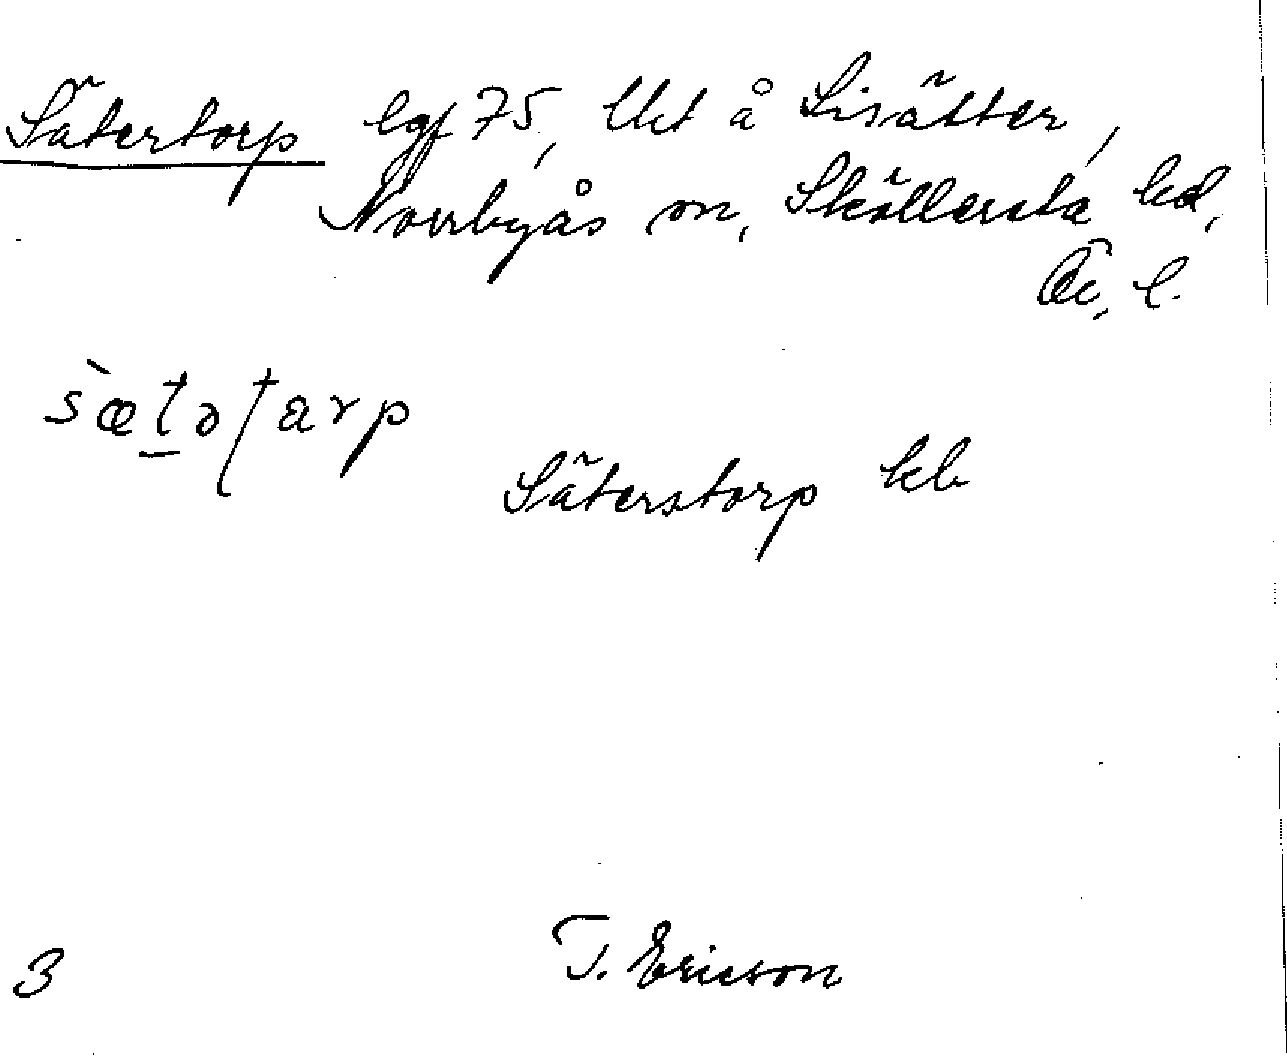 Sätertorp lgf 75, Uet å Lisätter,
Norrbyås sn, Sköllersta hd,
Ör. l.
sætətarp
Säterstorp kb
3 T. Ericson